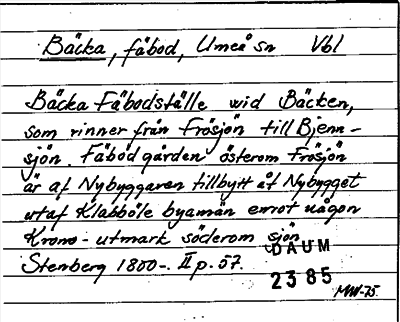 Bäcka, fäbod, Umeå sn Vbl
Bäcka Fäbodställe wid Bäcken,
som rinner från Frösjön till Bjenn-
sjön. Fäbodgården österom Frösjön
är af Nybyggaren tillbytt åt Nybygget
utaf Klabböle byamän emot någon
Krono-utmark söderom sjön.
Stenberg 1800-. II p. 57.
DAUM
2385
MW-75.